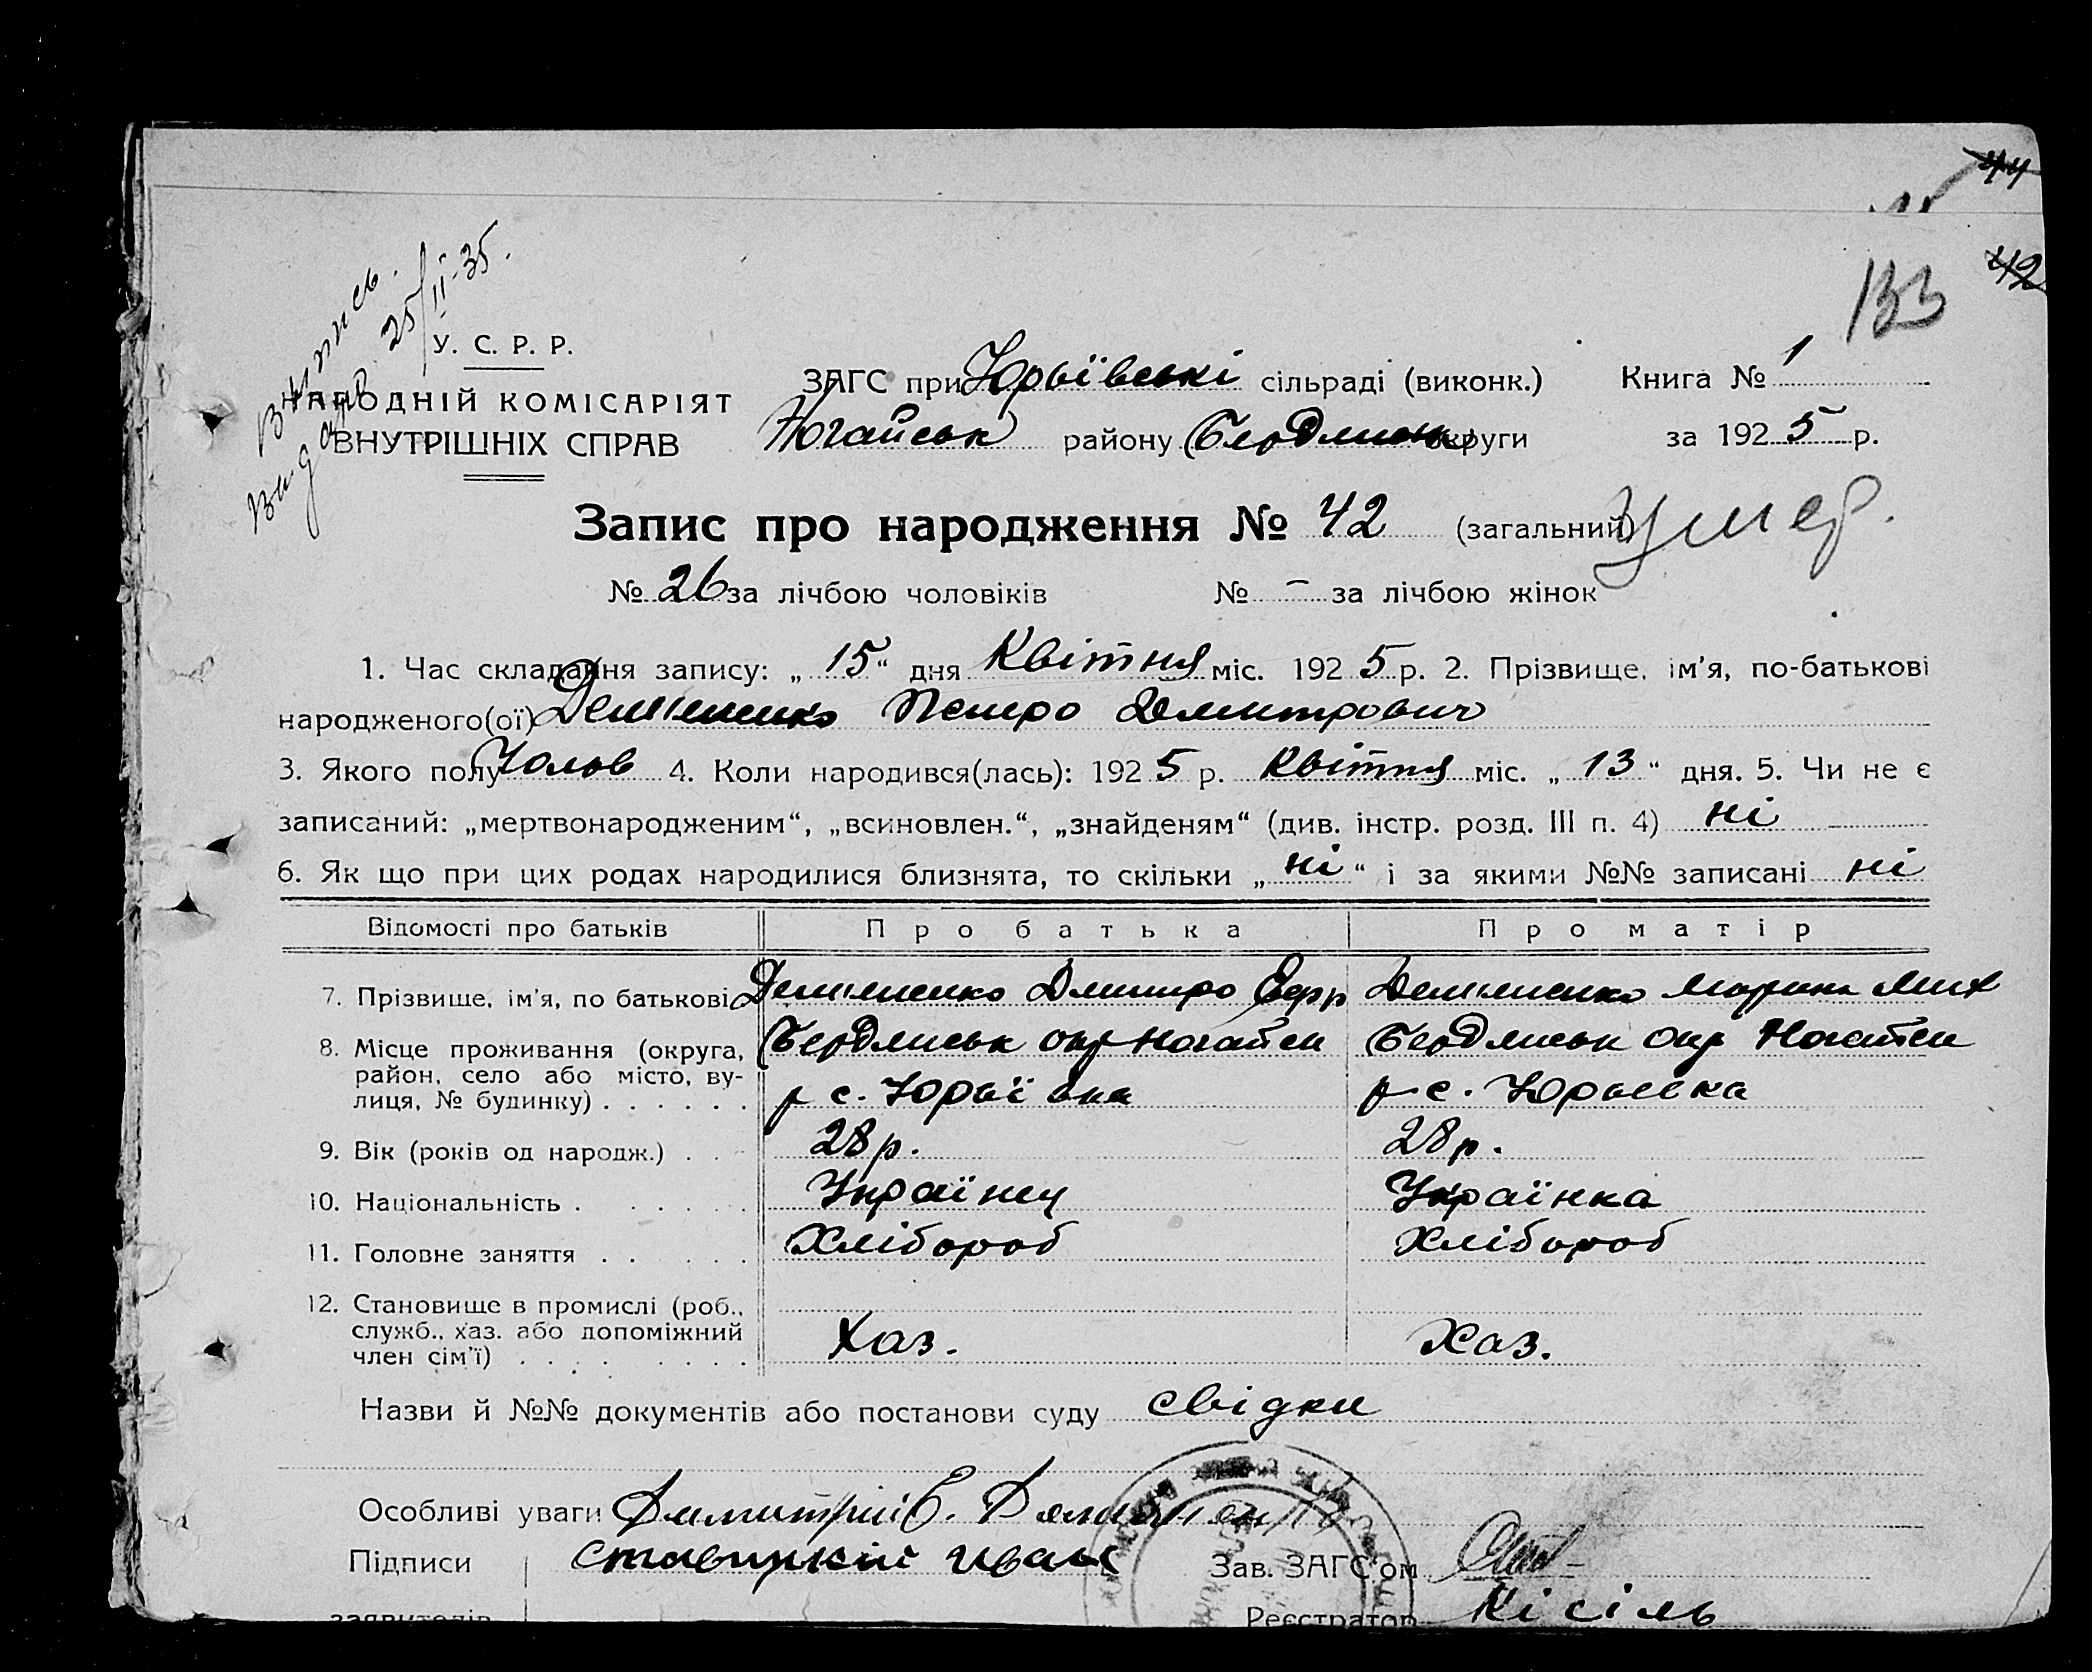 44
42
133
Випись.
видано 25/II-35.
У. С. Р. Р.
НАРОДНІЙ КОМІСАРІЯТ
ВНУТРІШНІХ СПРАВ
ЗАГС при Юрьївські сільраді (виконк.) Книга № 1
Ногайськ району Бердянськ округи за 1925 р.
Запис про народження № 42 (загальний) умер.
№ 26 за лічбою чоловіків № – за лічбою жінок
1. Час складання запису: „15“ дня Квітня міс. 1925 р. 2. Прізвище, ім’я, по-батькові
народженого(ої) Демяненко Петро Дмитрович
3. Якого полу Чолов 4. Коли народився(лась): 1925 р. Квітня міс. „13“ дня. 5. Чи не є
записаний: „мертвонародженим“, „всиновлен.“, „знайденям“ (див. інстр. розд. III п. 4) ні
6. Як що при цих родах народилися близнята, то скільки „ні“ і за якими №№ записані ні
Відомості про батьків Про батька Про матір
7. Прізвище, ім’я, по батькові Демяненко Дмитро Ефр Демяненко Марина Мих
8. Місце проживання (округа, Бердянськ окр Ногайськ Бердянськ окр Ногайськ
район, село або місто, ву-
лиця, № будинку) . . . . . . р с. Юрьївка р с. Юрьевка
9. Вік (років од народж.) . . . 28 р. 28 р.
10. Національність . . . . . . Українец Українка
11. Головне заняття . . . . . Хлібороб Хлібороб
12. Становище в промислі (роб.,
служб., хаз. або допоміжний
член сім’ї) . . . . . . . . Хаз. Хаз.
Назви й №№ документів або постанови суду свідки
Особливі уваги Димитрій Е. Демяненко
Підписи Ставицкий Иван Зав. ЗАГС’ом
заявителів Реєстратор Кісіль